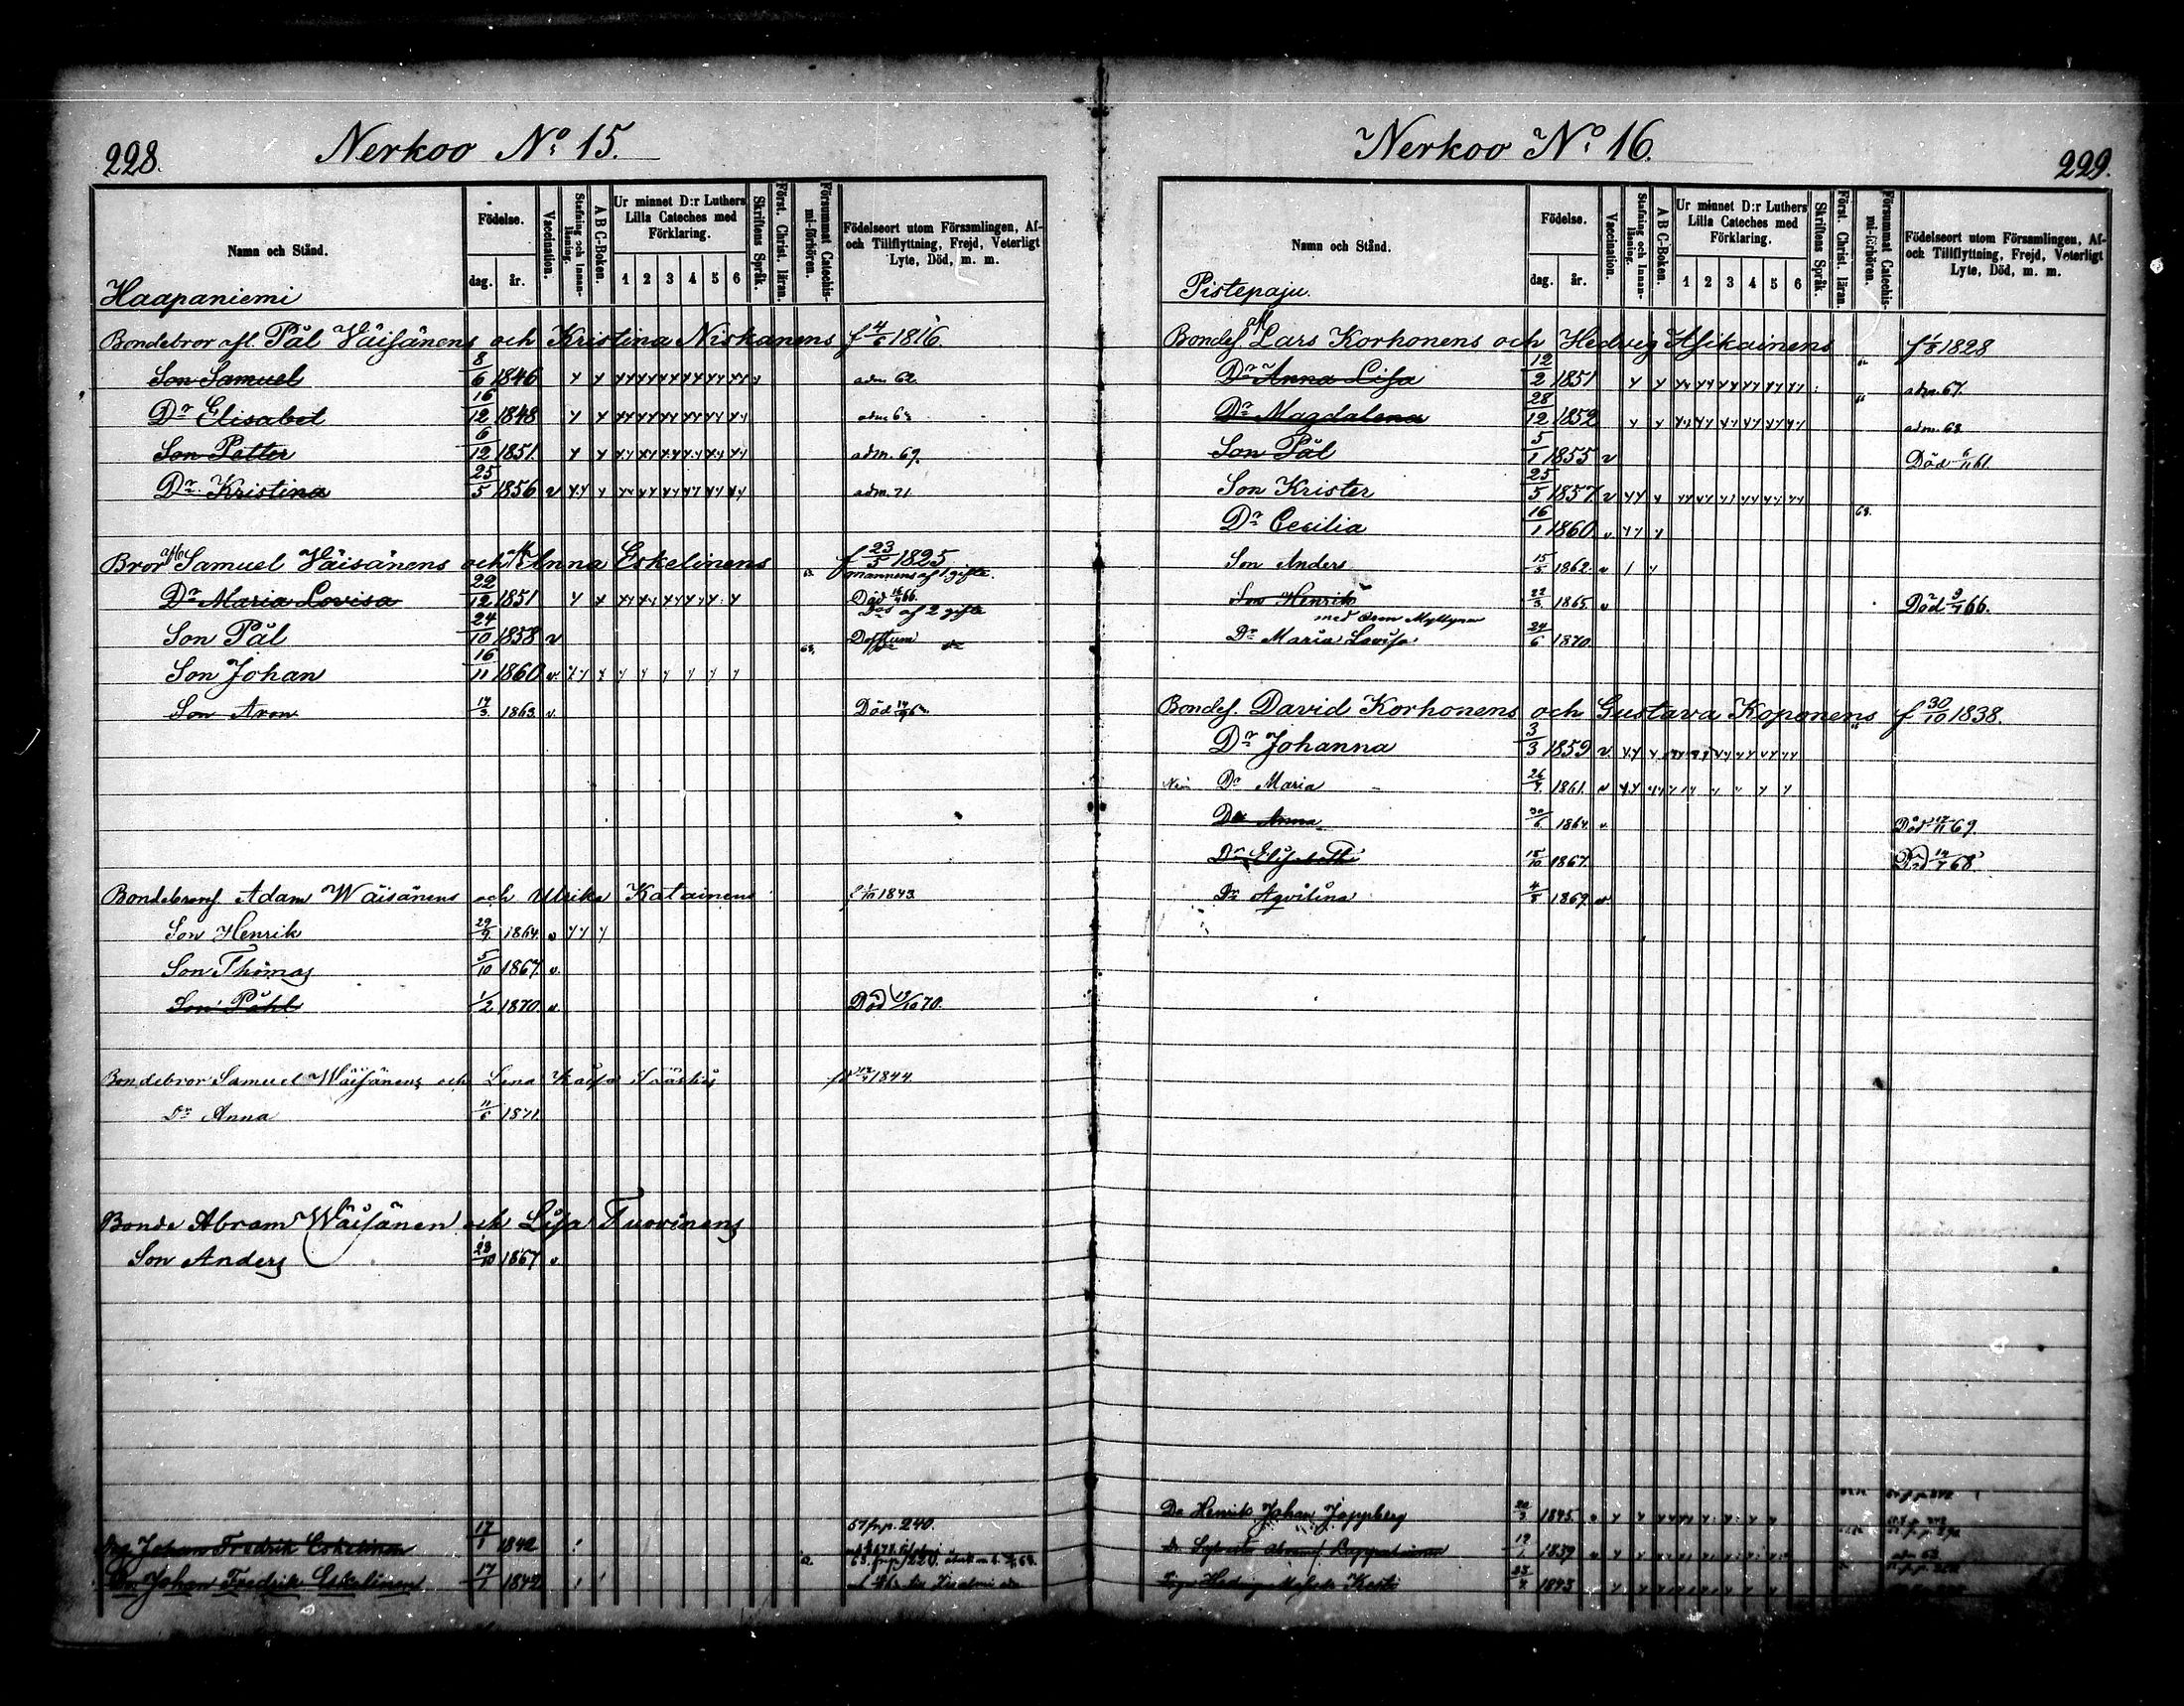 228.
Nerkoo No 15.
Namn och Stånd.
Födelse.
dag. år.
Vaccination.
Stafning och Innanläsning.
A B C-Boken.
Ur minnet D:r Luthers Lilla Cateches med Förklaring.
1 2 3 4 5 6
Skriftens Språk.
Först. Christ. läran.
Försummat Catechismi-förhören.
Födelseort utom Församlingen, Af- och Tillflyttning, Frejd, Veterligt Lyte, Död, m. m.
Haapaniemi
Bondebror afl. Pål Väisänens och Kristina Niskanens f 4/6 1816.
Son Samuel 8/6 1846 adm. 62.
Dr Elisabet 16/12 1848
Son Petter 6/12 1851. adm. 69.
Dr Kristina 25/5 1856 v adm. 71
Bror Samuel Väisänens och Anna Eskelinens f 23/5 1825
mannens af 1 gifte.
Dr Maria Lovisa 22/12 1851 Död 66.
af 2 gifte
Son Pål 24/10 1858 v Döfstum
Son Johan 16/11 1860 v.
Son Aron 17/3 1863. v. Död
Bondebrors. Adam Wäisänens och Ulrika Katainens f 1/10 1843
Son Henrik 29/9 1864. v
Son Thomas 5/10 1867. v.
Son Påhl 1/2 1870. v Död 19/10 70.
Bondebror Samuel Wäisänens och Lena Kaisa 1844.
Dr Anna 11/6 1871
Bonde Abram Wäisänen och Lisa Tuovinens
Son Anders 23/10 1867 v
Johan Fredrik Eskelinen 17/1 1842 67 fr. p. 240.
Johan Fredrik Eskelinen 17/1 1842
229.
Nerkoo No 16.
Namn och Stånd.
Födelse.
dag. år.
Vaccination.
Stafning och Innanläsning.
A B C-Boken.
Ur minnet D:r Luthers Lilla Cateches med Förklaring.
1 2 3 4 5 6
Skriftens Språk.
Först. Christ. läran.
Försummat Catechismi-förhören.
Födelseort utom Församlingen, Af- och Tillflyttning, Frejd, Veterligt Lyte, Död, m. m.
Pistepaju.
Bondes. Lars Korhonens och Hedvig Asikainens f 1/8 1828
Dr Anna Lisa 12/2 1851 adm. 67.
Dr Magdalena 28/12 1852 adm. 68
Son Pål 5/1 1855 v Död 6/11 61.
Son Krister 25/5 1857 v
Dr Cecilia 16/1 1860. v 68.
Son Anders 15/5 1862. v
Son Henrik 22/3 1865. v Död 9/7 66.
med
Dr Maria Lovisa 24/6 1870.
Bondes. David Korhonens och Gustava Koponens f 30/10 1838.
Dr Johanna 3/3 1859 v.
Dr Maria 26/7 1861. v
Dr Anna 30/6 1864. v. Död 69.
Dr Elisabeth 15/10 1867. Död 14/7 68.
Dr Aqvilina 4/8 1869. v
Do Henrik Johan Joppberg 20/3 1845. v
1839
Hedvig Kesti 23/4 1843